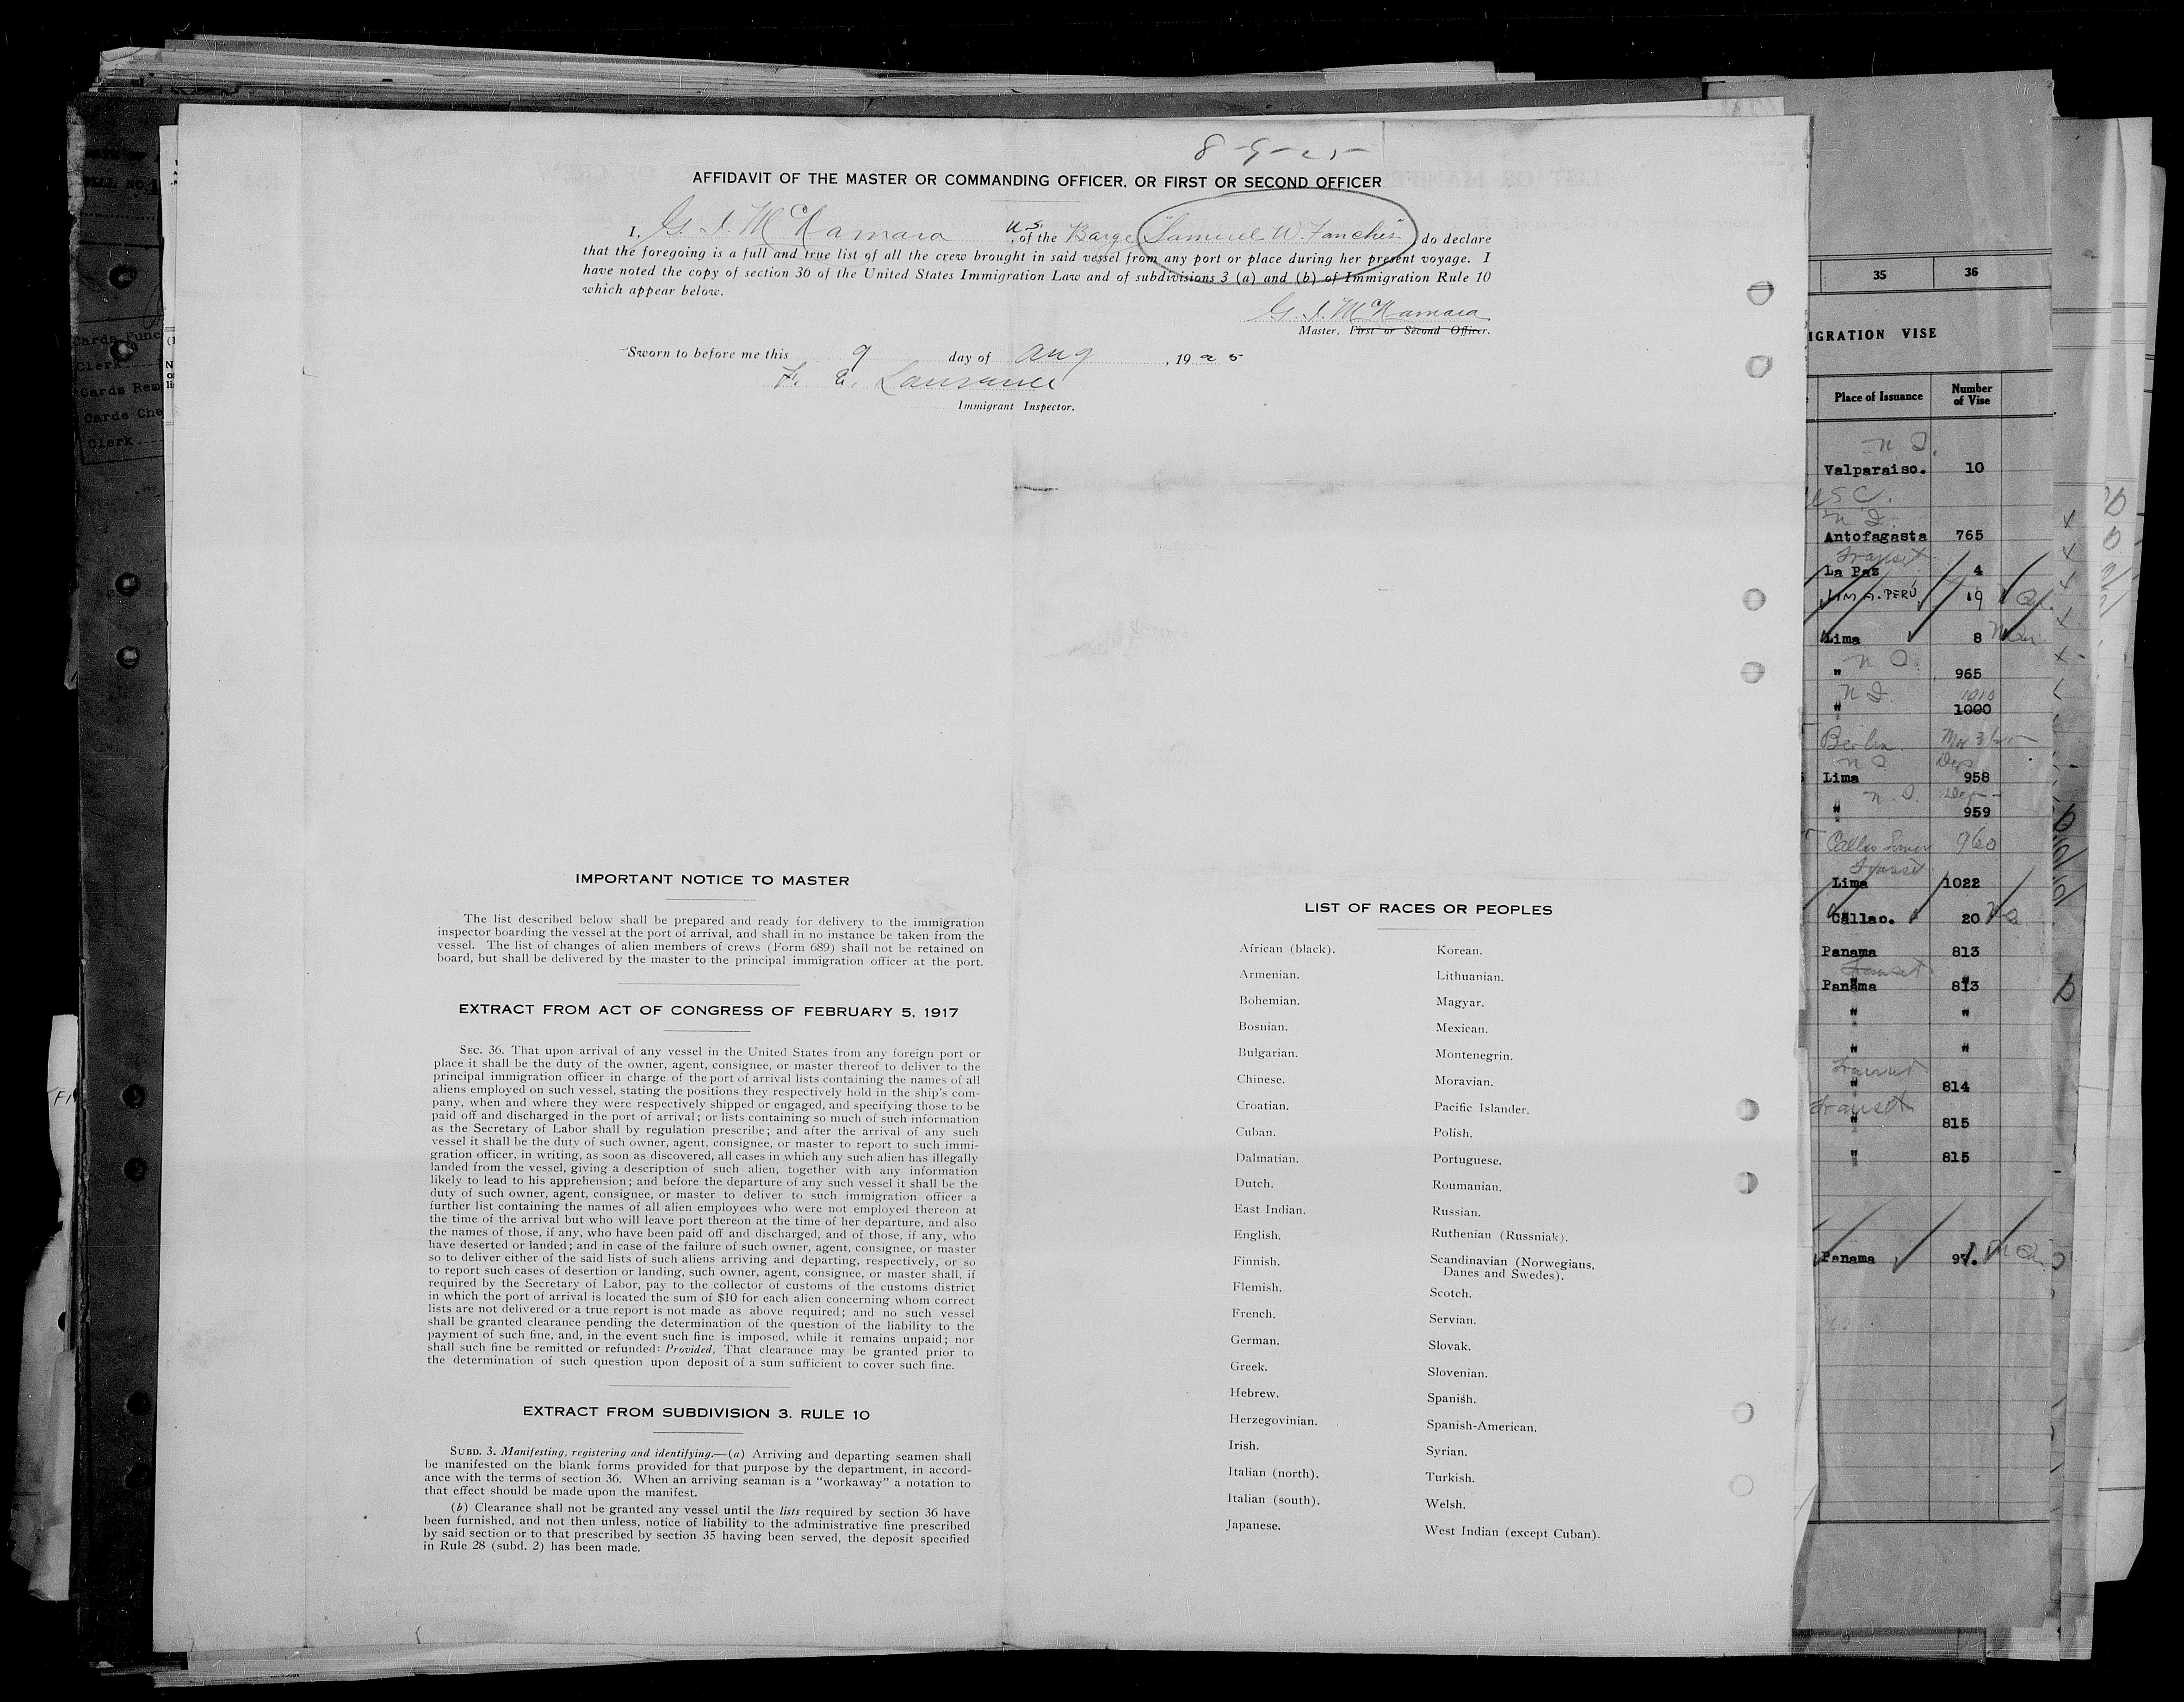 8-9-25
AFFIDAVIT OF THE MASTER OR COMMANDING OFFICER, OR FIRST OR SECOND OFFICER
I, G. I. McNamara U.S. , of the Barge "Samuel W. Fancher" do declare
that the foregoing is a full and true list of all the crew brought in said vessel from any port or place during her present voyage. I
have noted the copy of section 36 of the United States Immigration Law and of subdivisions 3 (a) and (b) of Immigration Rule 10
which appear below.
G. I. McNamara
Master, First or Second Officer.
Sworn to before me this 9 day of Aug , 1925
Immigrant Inspector.
IMPORTANT NOTICE TO MASTER
The list described below shall be prepared and ready for delivery to the immigration
inspector boarding the vessel at the port of arrival, and shall in no instance be taken from the
vessel. The list of changes of alien members of crews (Form 689) shall not be retained on
board, but shall be delivered by the master to the principal immigration officer at the port.
EXTRACT FROM ACT OF CONGRESS OF FEBRUARY 5, 1917
SEC. 36. That upon arrival of any vessel in the United States from any foreign port or
place it shall be the duty of the owner, agent, consignee, or master thereof to deliver to the
principal immigration officer in charge of the port of arrival lists containing the names of all
aliens employed on such vessel, stating the positions they respectively hold in the ship's com-
pany, when and where they were respectively shipped or engaged, and specifying those to be
paid off and discharged in the port of arrival; or lists containing so much of such information
as the Secretary of Labor shall by regulation prescribe; and after the arrival of any such
vessel it shall be the duty of such owner, agent, consignee, or master to report to such immi-
gration officer, in writing, as soon as discovered, all cases in which any such alien has illegally
landed from the vessel, giving a description of such alien, together with any information
likely to lead to his apprehension; and before the departure of any such vessel it shall be the
duty of such owner, agent, consignee, or master to deliver to such immigration officer a
further list containing the names of all alien employees who were not employed thereon at
the time of the arrival but who will leave port thereon at the time of her departure, and also
the names of those, if any, who have been paid off and discharged, and of those, if any, who
have deserted or landed; and in case of the failure of such owner, agent, consignee, or master
so to deliver either of the said lists of such aliens arriving and departing, respectively, or so
to report such cases of desertion or landing, such owner, agent, consignee, or master shall, if
required by the Secretary of Labor, pay to the collector of customs of the customs district
in which the port of arrival is located the sum of $10 for each alien concerning whom correct
lists are not delivered or a true report is not made as above required; and no such vessel
shall be granted clearance pending the determination of the question of the liability to the
payment of such fine, and, in the event such fine is imposed, while it remains unpaid; nor
shall such fine be remitted or refunded: Provided, That clearance may be granted prior to
the determination of such question upon deposit of a sum sufficient to cover such fine.
EXTRACT FROM SUBDIVISION 3, RULE 10
SUBD. 3. Manifesting, registering and identifying.—(a) Arriving and departing seamen shall
be manifested on the blank forms provided for that purpose by the department, in accord-
ance with the terms of section 36. When an arriving seaman is a "workaway" a notation to
that effect should be made upon the manifest.
(b) Clearance shall not be granted any vessel until the lists required by section 36 have
been furnished, and not then unless, notice of liability to the administrative fine prescribed
by said section or to that prescribed by section 35 having been served, the deposit specified
in Rule 28 (subd. 2) has been made.
LIST OF RACES OR PEOPLES
African (black).
Armenian.
Bohemian.
Bosnian.
Bulgarian.
Chinese.
Croatian.
Cuban.
Dalmatian.
Dutch.
East Indian.
English.
Finnish.
Flemish.
French.
German.
Greek.
Hebrew.
Herzegovinian.
Irish.
Italian (north).
Italian (south).
Japanese.
Korean.
Lithuanian.
Magyar.
Mexican.
Montenegrin.
Moravian.
Pacific Islander.
Polish.
Portuguese.
Roumanian.
Russian.
Ruthenian (Russniak).
Scandinavian (Norwegians,
Danes and Swedes).
Scotch.
Servian.
Slovak.
Slovenian.
Spanish.
Spanish-American.
Syrian.
Turkish.
Welsh.
West Indian (except Cuban).
35 36
IGRATION VISE
Place of Issuance
Number
of Vise
Valparaiso. 10
Antofagasta 765
Transit
La Paz 4
LIMA. PERÚ 19
Lima 8
" 965
1010
" 1000
Berlin
Lima 958
" 959
960
Transit
Lima 1022
Callao. 20
Panama 813
Transit
Panama 813
" "
" "
Transit
" 814
Transit
" 815
" 815
Panama 97.
Cards Punc
Clerk
Cards Rem
Cards Che
Clerk